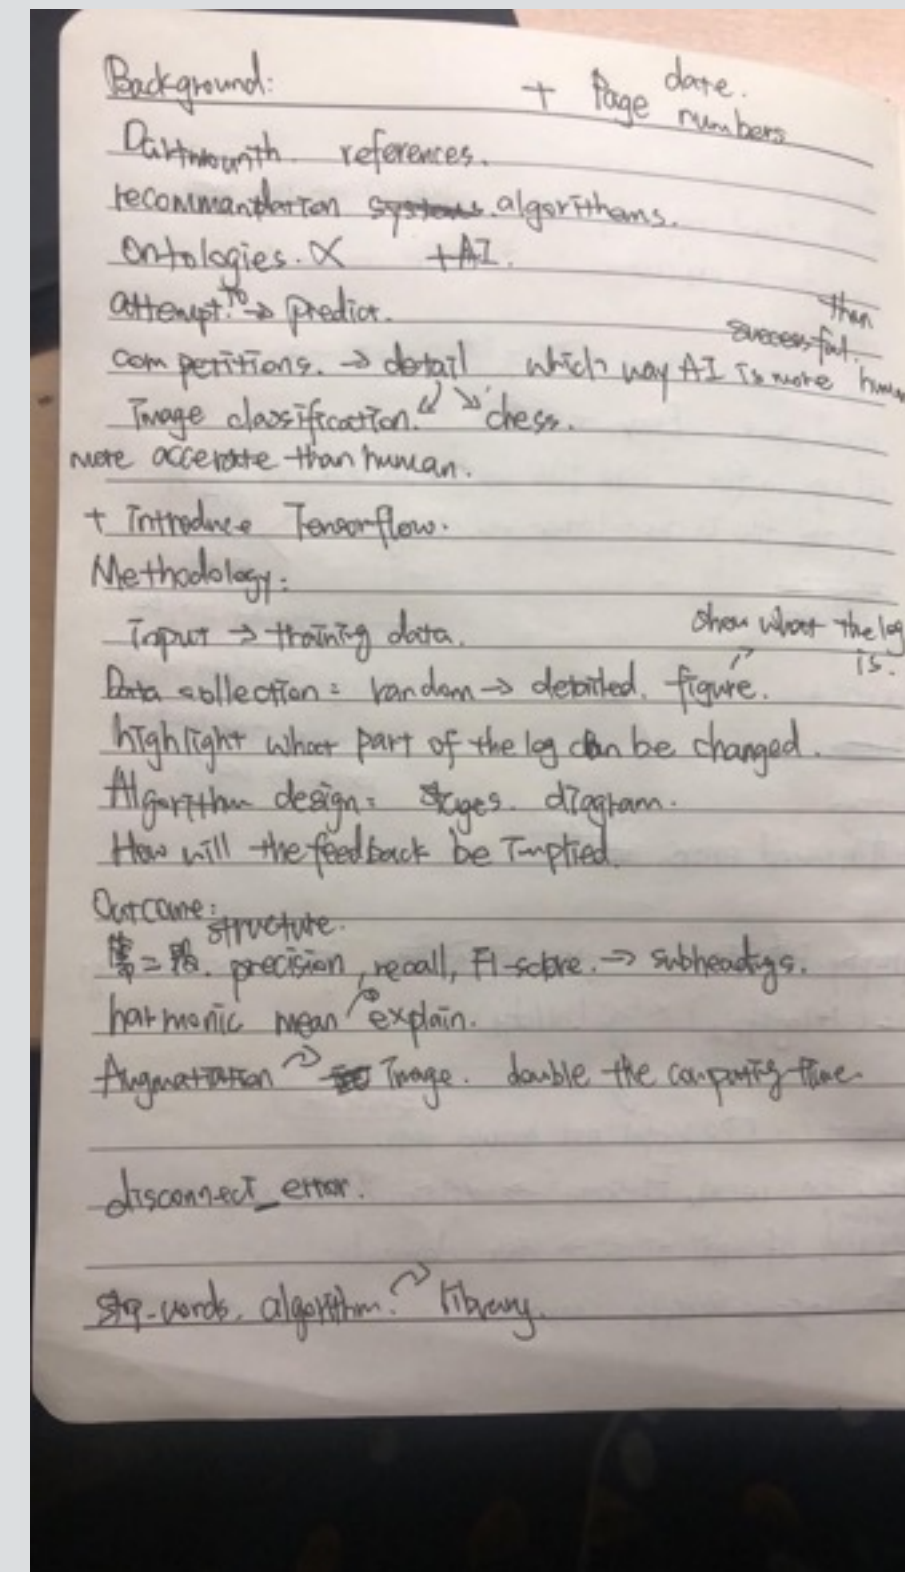 Background: + Page numbers date.
Dartmounth references.
recommandation systems algorithems.
Ontologies. X +AI.
attempt. to → predict.
competitions. → detail which way AI is more successful. than human
Image classification. ↙ ↘ chess.
more accerate than human.
+ Introduce Tensorflow.
Methodology:
input → training data. show what the log is.
Data collection: random → detailed. figure.
highlight what part of the log can be changed.
Algorithm design: stages. diagram.
How will the feedback be implied.
Outcome:
structure.
第二段. precision, recall, F1-score. → subheadings.
harmonic mean explain.
Image. double the computing time.
disconnect_error.
stop-words. algorithm. library.